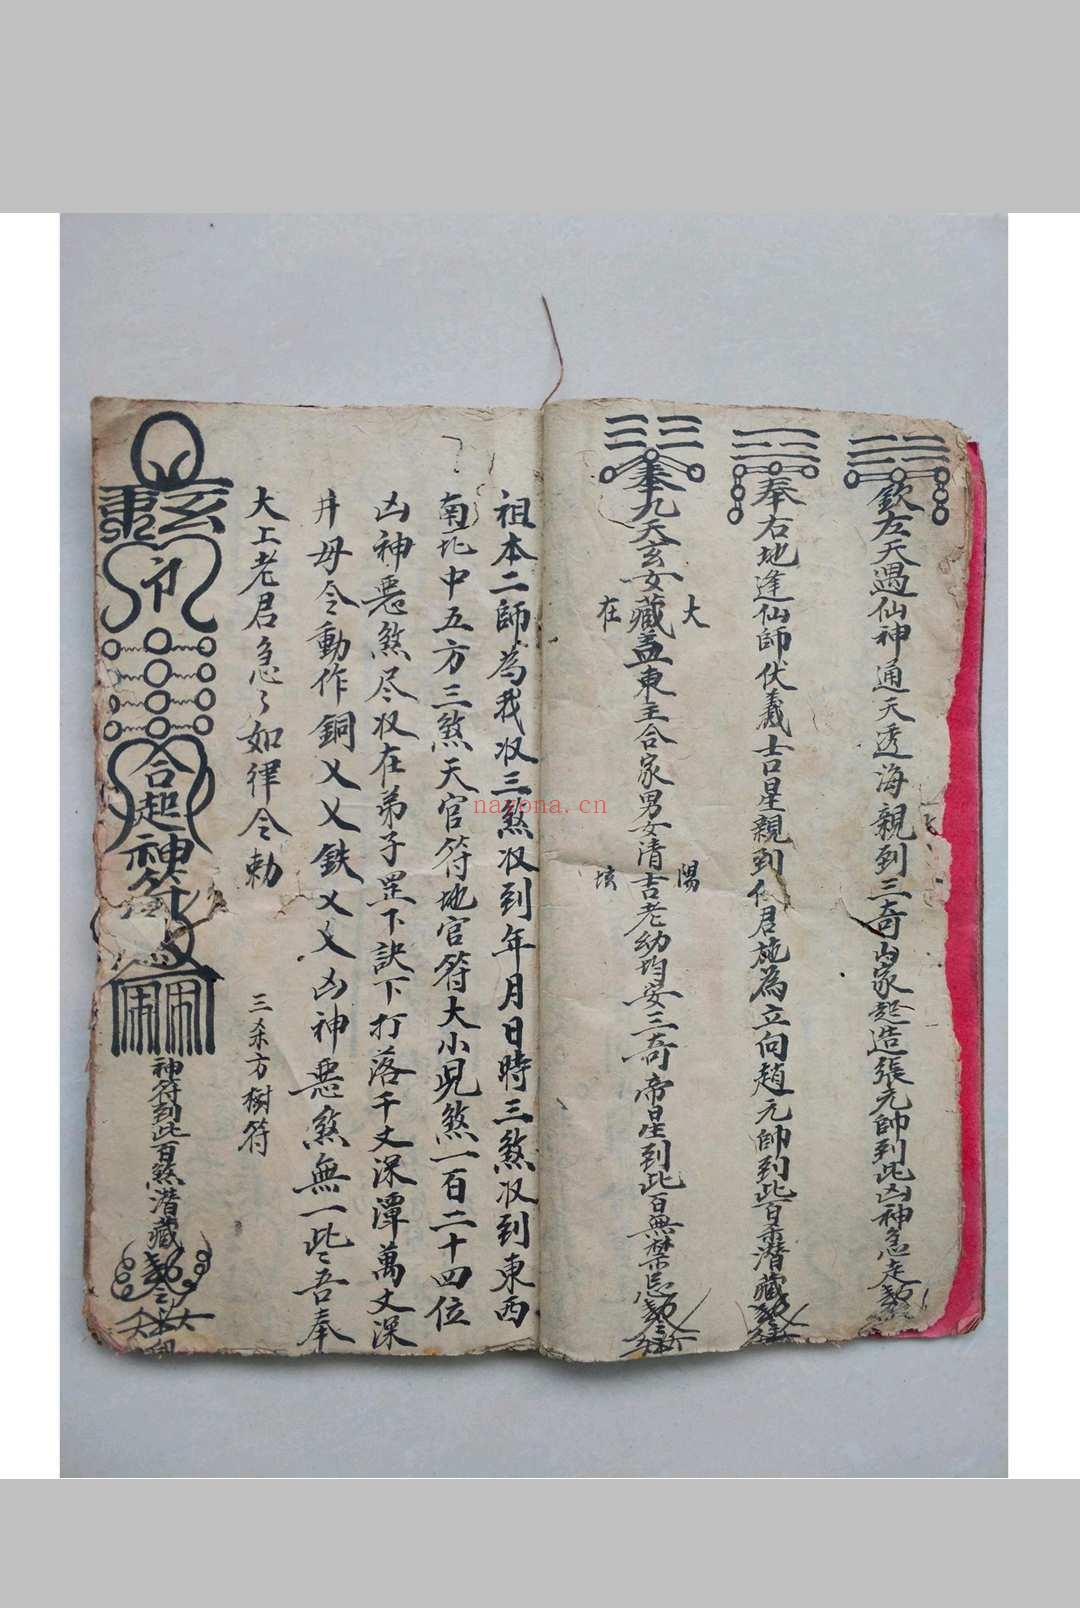 欽左天遇仙神通天透海親到三奇内家起造張元帥到此凶神急走
奉右地逢仙師伏羲吉星親到代君施為立向趙元帥到此百煞潜藏
奉九天玄女藏盖東主合家男女清吉老幼均安三奇帝星到此百無禁忌
大
在
陽
祖本二師為我収三煞収到年月日時三煞収到東西
南北中五方三煞天官符地官符大小児煞一百二十四位
凶神惡煞尽収在弟子罡下訣下打落千丈深潭萬丈深
井毋令動作銅乂乂鉄乂乂凶神惡煞無一些吾奉
太上老君急々如律令勅
三杀方樹符
玄
合起神符
神符到此百煞潜藏
nayona.cn